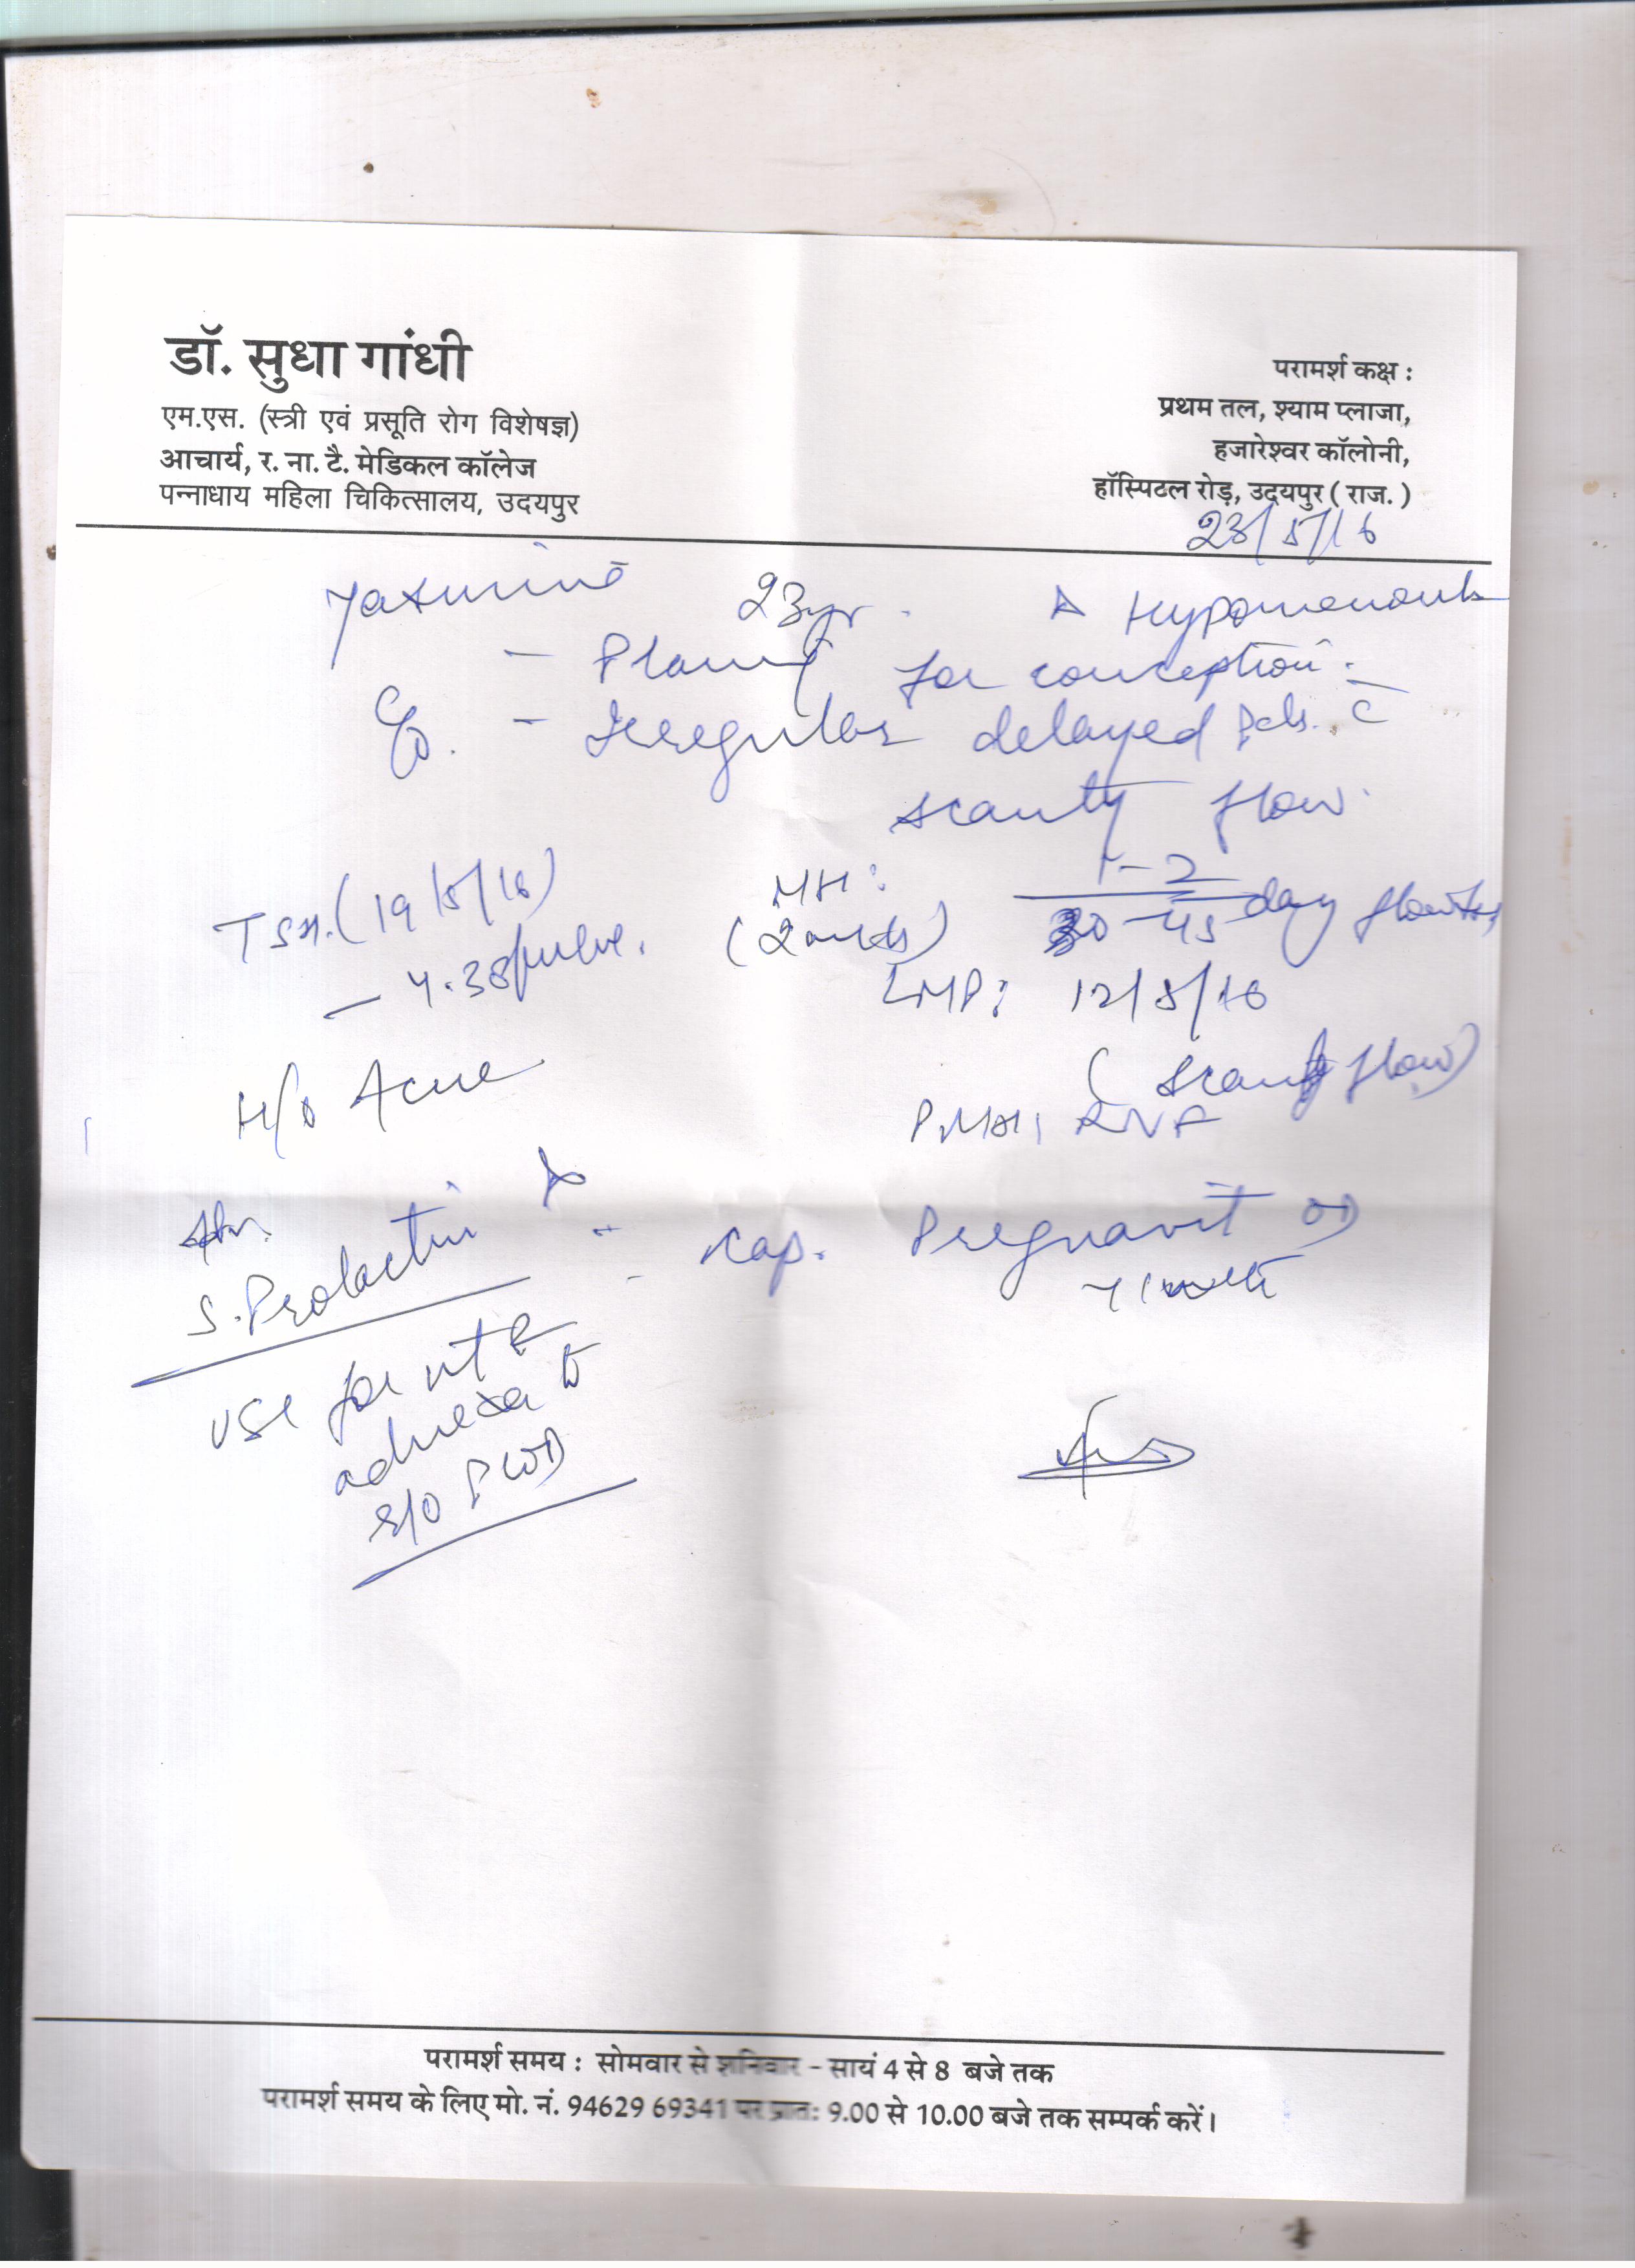 डॉ. सुधा गांधी
एम.एस. (स्त्री एवं प्रसूति रोग विशेषज्ञ)
आचार्य, र. ना. टै. मेडिकल कॉलेज
पन्नाधाय महिला चिकित्सालय, उदयपुर
परामर्श कक्ष :
प्रथम तल, श्याम प्लाजा,
हजारेश्वर कॉलोनी,
हॉस्पिटल रोड़, उदयपुर ( राज. )
23/5/16
23yr.
for conception.
- Irregular delayed
scanty flow.
TSH. (19/5/16)
- 4.38
MH:
1-2
30-45 day
LMP: 12/5/16
(scanty flow)
H/o Acne
S. Prolactin
- Cap. Pregnavit OD
for ut &
adnexa to
R/O PCOD
परामर्श समय : सोमवार से शनिवार - सायं 4 से 8 बजे तक
परामर्श समय के लिए मो. नं. 94629 69341 पर प्रातः 9.00 से 10.00 बजे तक सम्पर्क करें।